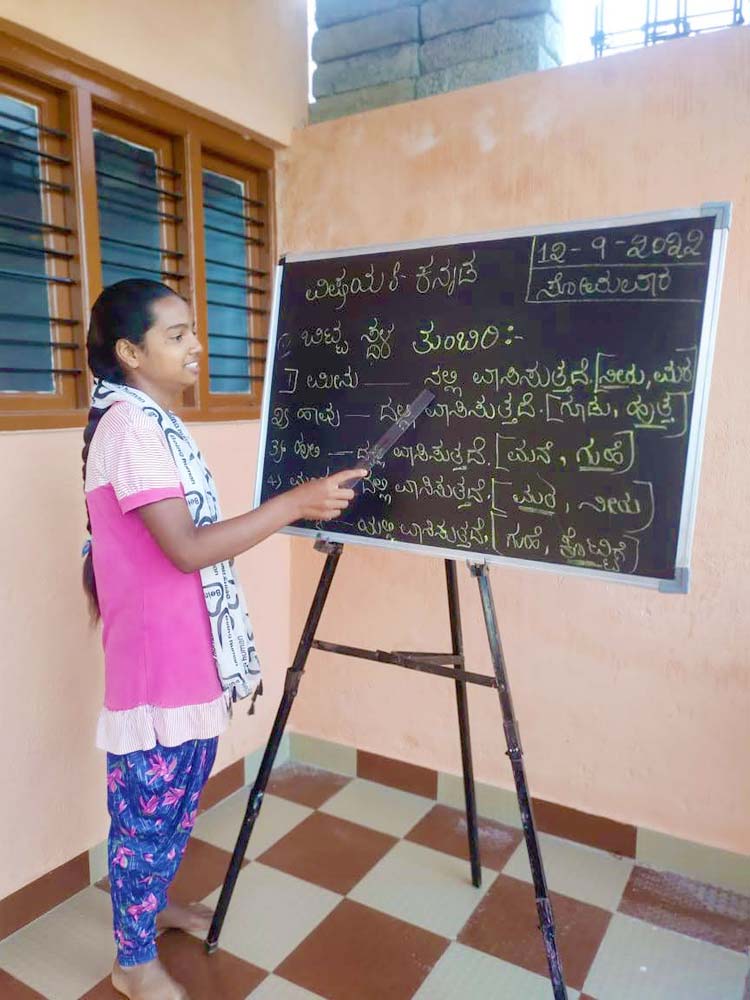 12-9-೨೦೨೨
ಸೋಮವಾರ
ವಿಷಯ:- ಕನ್ನಡ
ಬಿಟ್ಟ ಸ್ಥಳ ತುಂಬಿರಿ:-
1) ಮೀನು — ನಲ್ಲಿ ವಾಸಿಸುತ್ತದೆ. [ನೀರು, ಮರ
೨) ಹಾವು — ದಲ್ಲಿ ವಾಸಿಸುತ್ತದೆ. [ಗೂಡು, ಹುತ್ತ]
೩) ಹುಲಿ — ದಲ್ಲಿ ವಾಸಿಸುತ್ತದೆ. [ಮನೆ, ಗುಹೆ]
೪) — ದಲ್ಲಿ ವಾಸಿಸುತ್ತದೆ. [ಮರ, ನೀರು]
— ಯಲ್ಲಿ ವಾಸಿಸುತ್ತದೆ. [ಗುಹೆ, ಕೊಟ್ಟಿಗೆ]
Being human